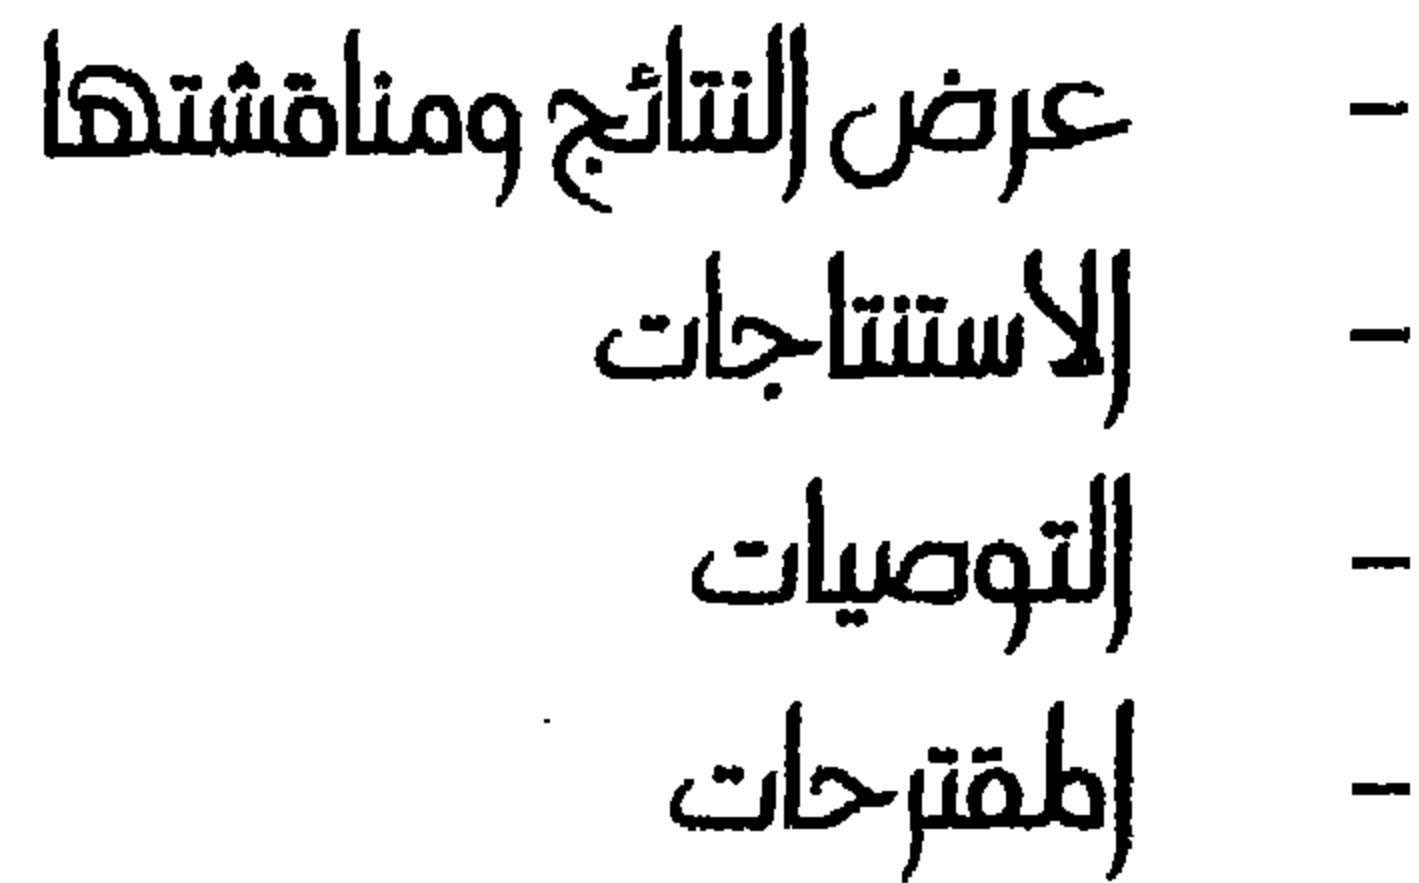 - عرض النتائج ومناقشتها
- الاستنتاجات
- التوصيات
- المقترحات